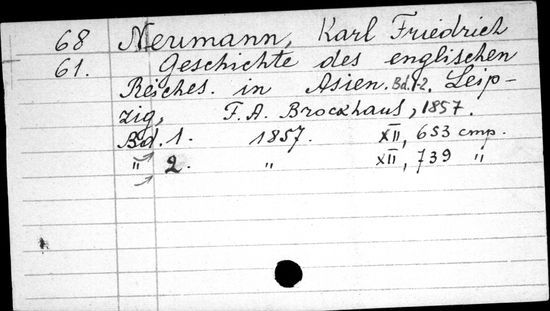 68 Neumann, Karl Friedrich
61. Geschichte des englischen
Reiches in Asien. Bd. 1-2. Leip-
zig, F. A. Brockhaus, 1857.
Bd. 1. 1857. XII, 653 стр.
" 2. " XII, 739 "